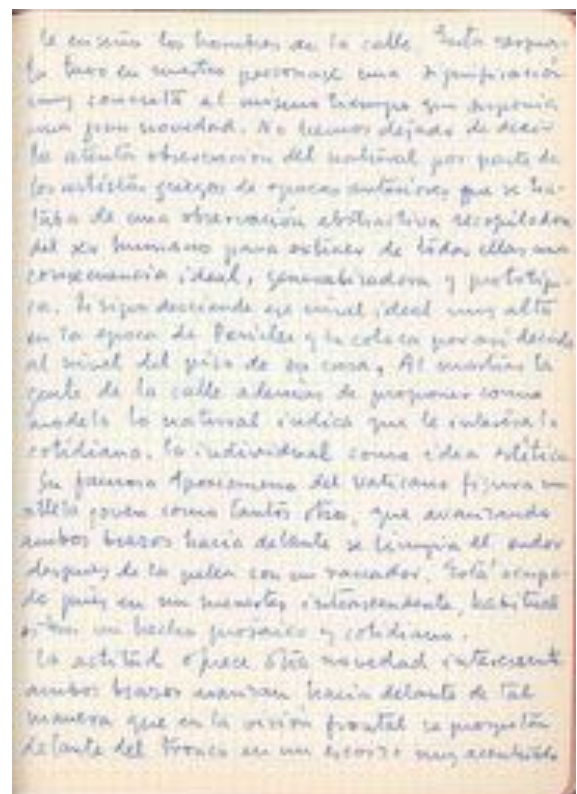 le enseña los hombres de la calle. Esta respues-
ta tuvo en nuestro personaje una significación
muy concreta al mismo tiempo que suponía
una gran novedad. No hemos dejado de decir
la atenta observación del natural por parte de
los artistas griegos de epocas anteriores que se tra-
taba de una observación abstractiva recopiladora
del ser humano para extraer de todas ellas una
consecuencia ideal, generalizadora y prototípi-
ca. Lisipo desciende ese nivel ideal muy alto
en la epoca de Pericles y lo coloca por asi decirlo
al nivel del piso de su casa. Al mostrar la
gente de la calle además de proponer como
modelo lo natural indica que le interesa lo
cotidiano, lo individual como idea estética
Su famoso Apoxiomeno del Vaticano figura un
atleta joven como tantos otros, que avanzando
ambos brazos hacia delante se limpia el sudor
después de la pelea con un rascador. Está ocupa-
do pués en un menester intrascendente, habitual
en un hecho prosaico y cotidiano.
La actitud ofrece otra novedad interesante
ambos brazos avanzan hacia delante de tal
manera que en la visión frontal se proyectan
delante del tronco en un escorzo muy acentuado